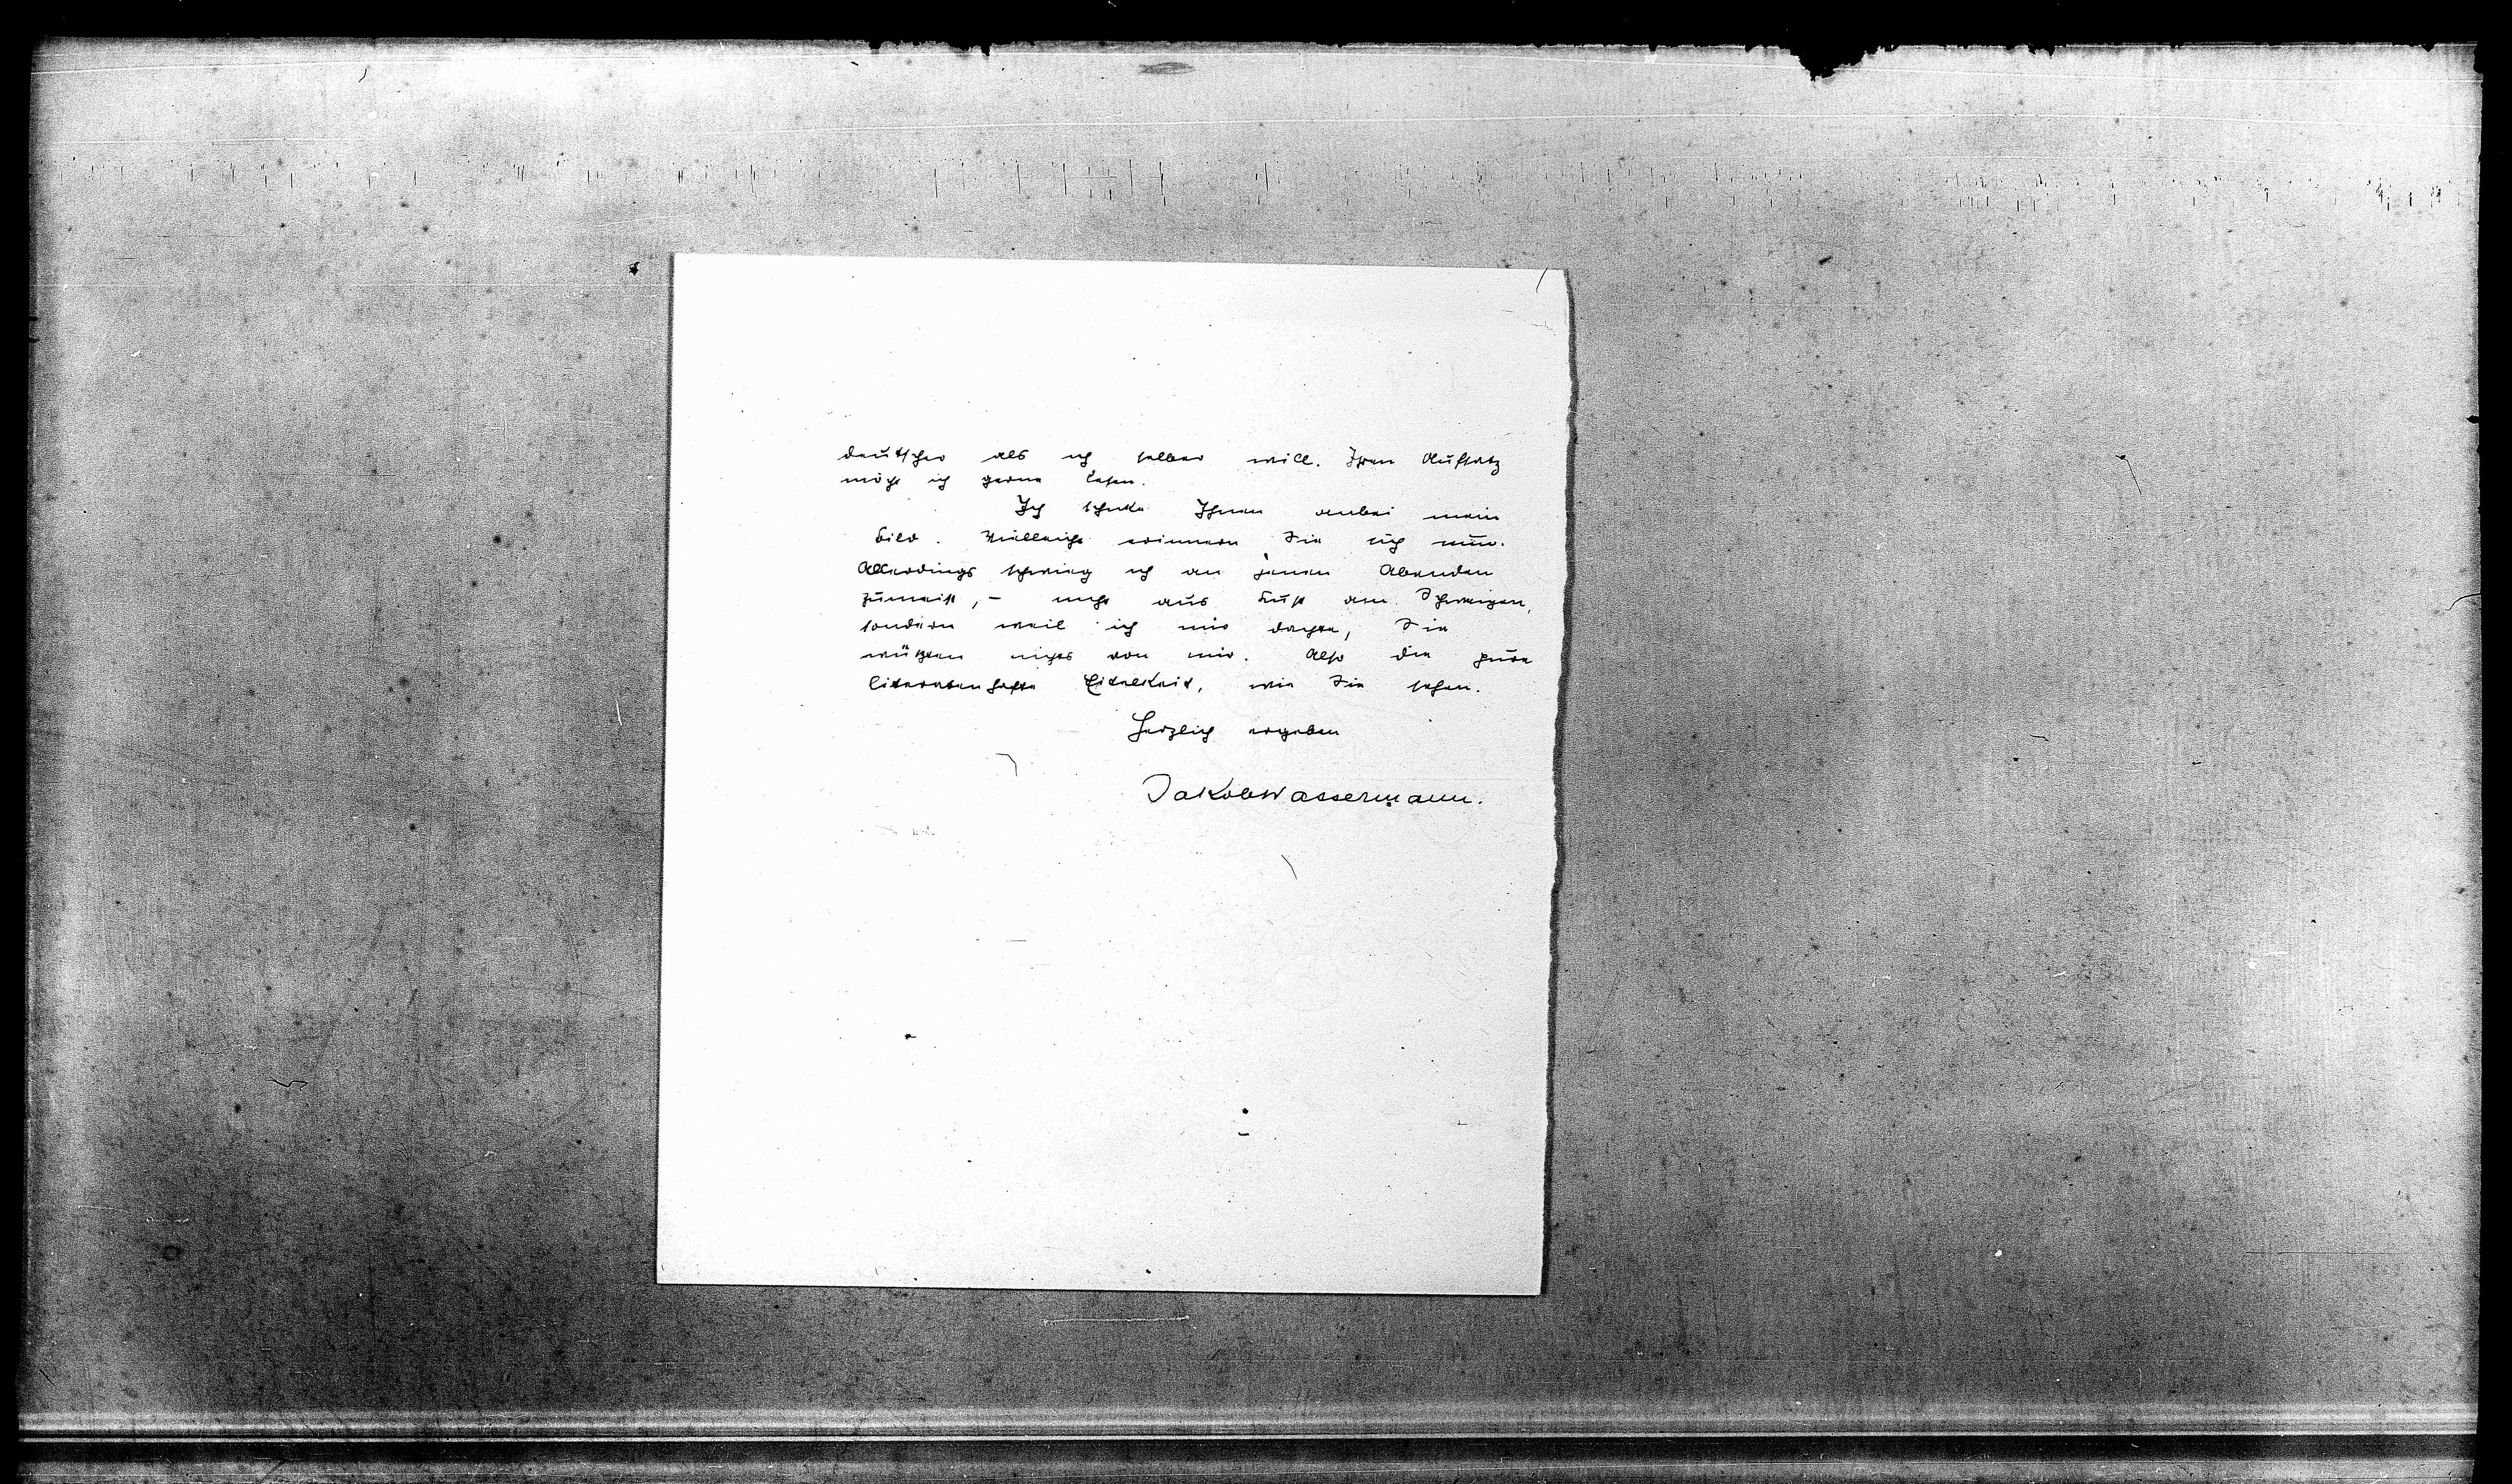 deutscher als ich selber will. Ihren Aufsatz
möcht ich gerne lesen.
Ich schicke Ihnen anbei mein
Bild. Vielleicht erinnern Sie sich nun.
Allerdings schwieg ich an jenen Abenden
zumeist, – nicht aus Lust am Schweigen,
sondern weil ich mir dachte, Sie
wüßten nichts von mir. Also die pure
literatenhafte Eitelkeit, wie Sie sehen.
Herzlich ergeben
Jakob Wassermann.